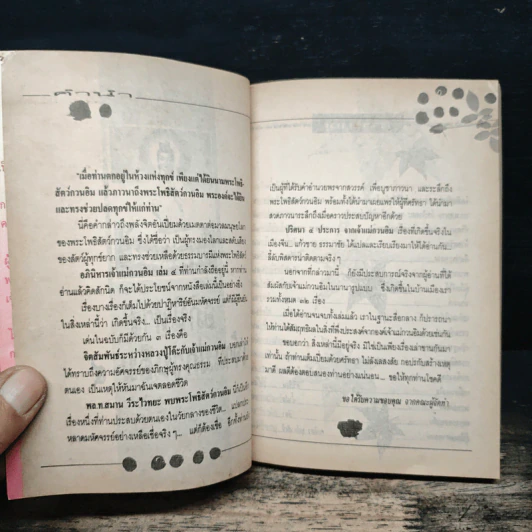 คำนำ
"เมื่อท่านตกอยู่ในห้วงแห่งทุกข์ เพียงแต่ได้ยินนามพระโพธิ
สัตว์กวนอิม แล้วภาวนาถึงพระโพธิสัตว์กวนอิม พระองค์จะได้ยิน
และทรงช่วยปลดทุกข์ให้แก่ท่าน"
นี่คือคำกล่าวถึงพลังจิตอันเปี่ยมด้วยเมตตาต่อมวลมนุษย์โลก
ของพระโพธิสัตว์กวนอิม ซึ่งได้ชื่อว่า เป็นผู้ทรงมองโลกและสดับเสียง
ของสัตว์ผู้ตกทุกข์ได้ยาก และทรงช่วยเหลือด้วยธรรมบารมีแห่งพระโพธิสัตว์
อภินิหารเจ้าแม่กวนอิม เล่ม ๔ ที่ท่านกำลังถืออยู่นี้ หากท่าน
อ่านแล้วคิดสักนิด ก็จะได้ประโยชน์จากหนังสือเล่มนี้เป็นอย่างยิ่ง
เรื่องบางเรื่องก็เต็มไปด้วยปาฏิหาริย์อันมหัศจรรย์ แต่ก็มีผู้ยืนยัน
ในสิ่งเหล่านี้ว่า เกิดขึ้นจริง... เป็นเรื่องจริง
เด่นในฉบับก็มีด้วยกัน ๓ เรื่องคือ
จิตสัมพันธ์ระหว่างหลวงปู่โต๊ะกับเจ้าแม่กวนอิม
ได้ทราบถึงความอัศจรรย์ของภิกษุผู้ทรงคุณธรรม ที่ประสบมาด้วย
ตนเอง เป็นเหตุให้หันมาฉันเจตลอดชีวิต
พล.ท.สมาน วีระไวทยะ พบพระโพธิสัตว์กวนอิม นี่ก็เป็นอีก
เรื่องหนึ่งที่ท่านประสบด้วยตนเองในวัยกลางของชีวิต...
หลาดมหัศจรรย์อย่างเหลือเชื่อจริง ๆ... แต่ก็ต้องเชื่อ อีกทั้งท่าน
เป็นผู้ที่ได้รับคำอำนวยพรจากสวรรค์ เพื่อบูชาภาวนา และระลึกถึง
พระโพธิสัตว์กวนอิม พร้อมทั้งได้นำมาเผยแพร่ให้ผู้ที่ศรัทธา ได้นำมา
สวดภาวนาระลึกถึงเมื่อคราวประสบปัญหาอีกด้วย
ปริศนา ๔ ประการ จากเจ้าแม่กวนอิม เรื่องที่เกิดขึ้นจริงใน
เมืองจีน.. แก้วชาย ธรรมาชัย ได้แปลและเรียบเรียงมาให้ได้อ่านกัน...
ที่ลับพิสดารน่าติดตามจริง ๆ
นอกจากที่กล่าวมานี้ ก็ยังมีประสบการณ์จริงจากผู้อ่านที่ได้
สัมผัสกับเจ้าแม่กวนอิมในนานารูปแบบ ซึ่งเกิดขึ้นในบ้านเมืองเรา
รวมทั้งหมด ๑๒ เรื่อง
เมื่อได้อ่านจนจบทั้งเล่มแล้ว เราในฐานะสื่อกลาง ก็ปรารถนา
ให้ท่านได้สัมฤทธิผลในสิ่งที่พึงประสงค์จากองค์เจ้าแม่กวนอิมด้วยเช่นกัน
ขอบอกว่า สิ่งเหล่านี้มีอยู่จริง มิใช่เป็นเพียงเรื่องเล่าขานกันมา
เท่านั้น ถ้าท่านเต็มเปี่ยมด้วยศรัทธา ไม่ลังเลสงสัย กอปรกับสร้างเหตุ
มาดี ผลดีต้องตอบสนองท่านอย่างแน่นอน... ขอให้ทุกท่านโชคดี
ขอได้รับความขอบคุณ จากคณะผู้จัดทำ